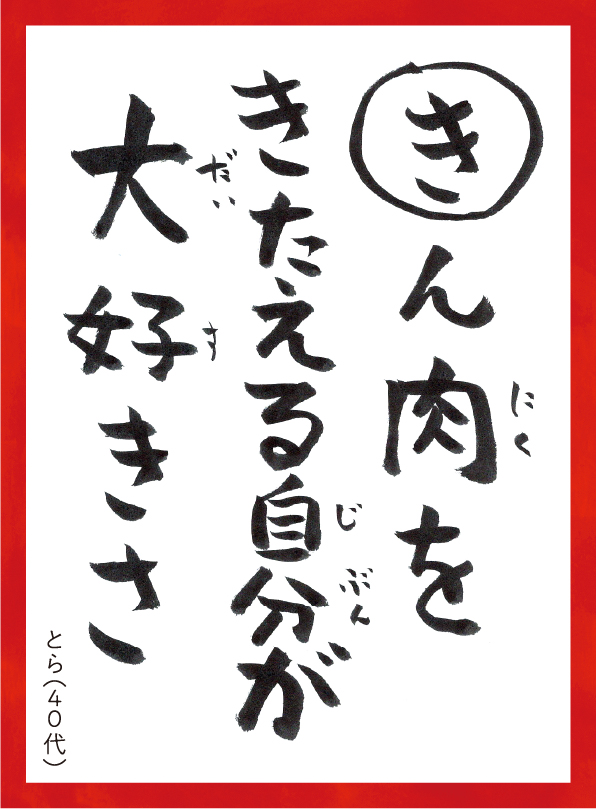 きん肉を
にく
きたえる自分が
じぶん
大好きさ
だいす
とら(40代)